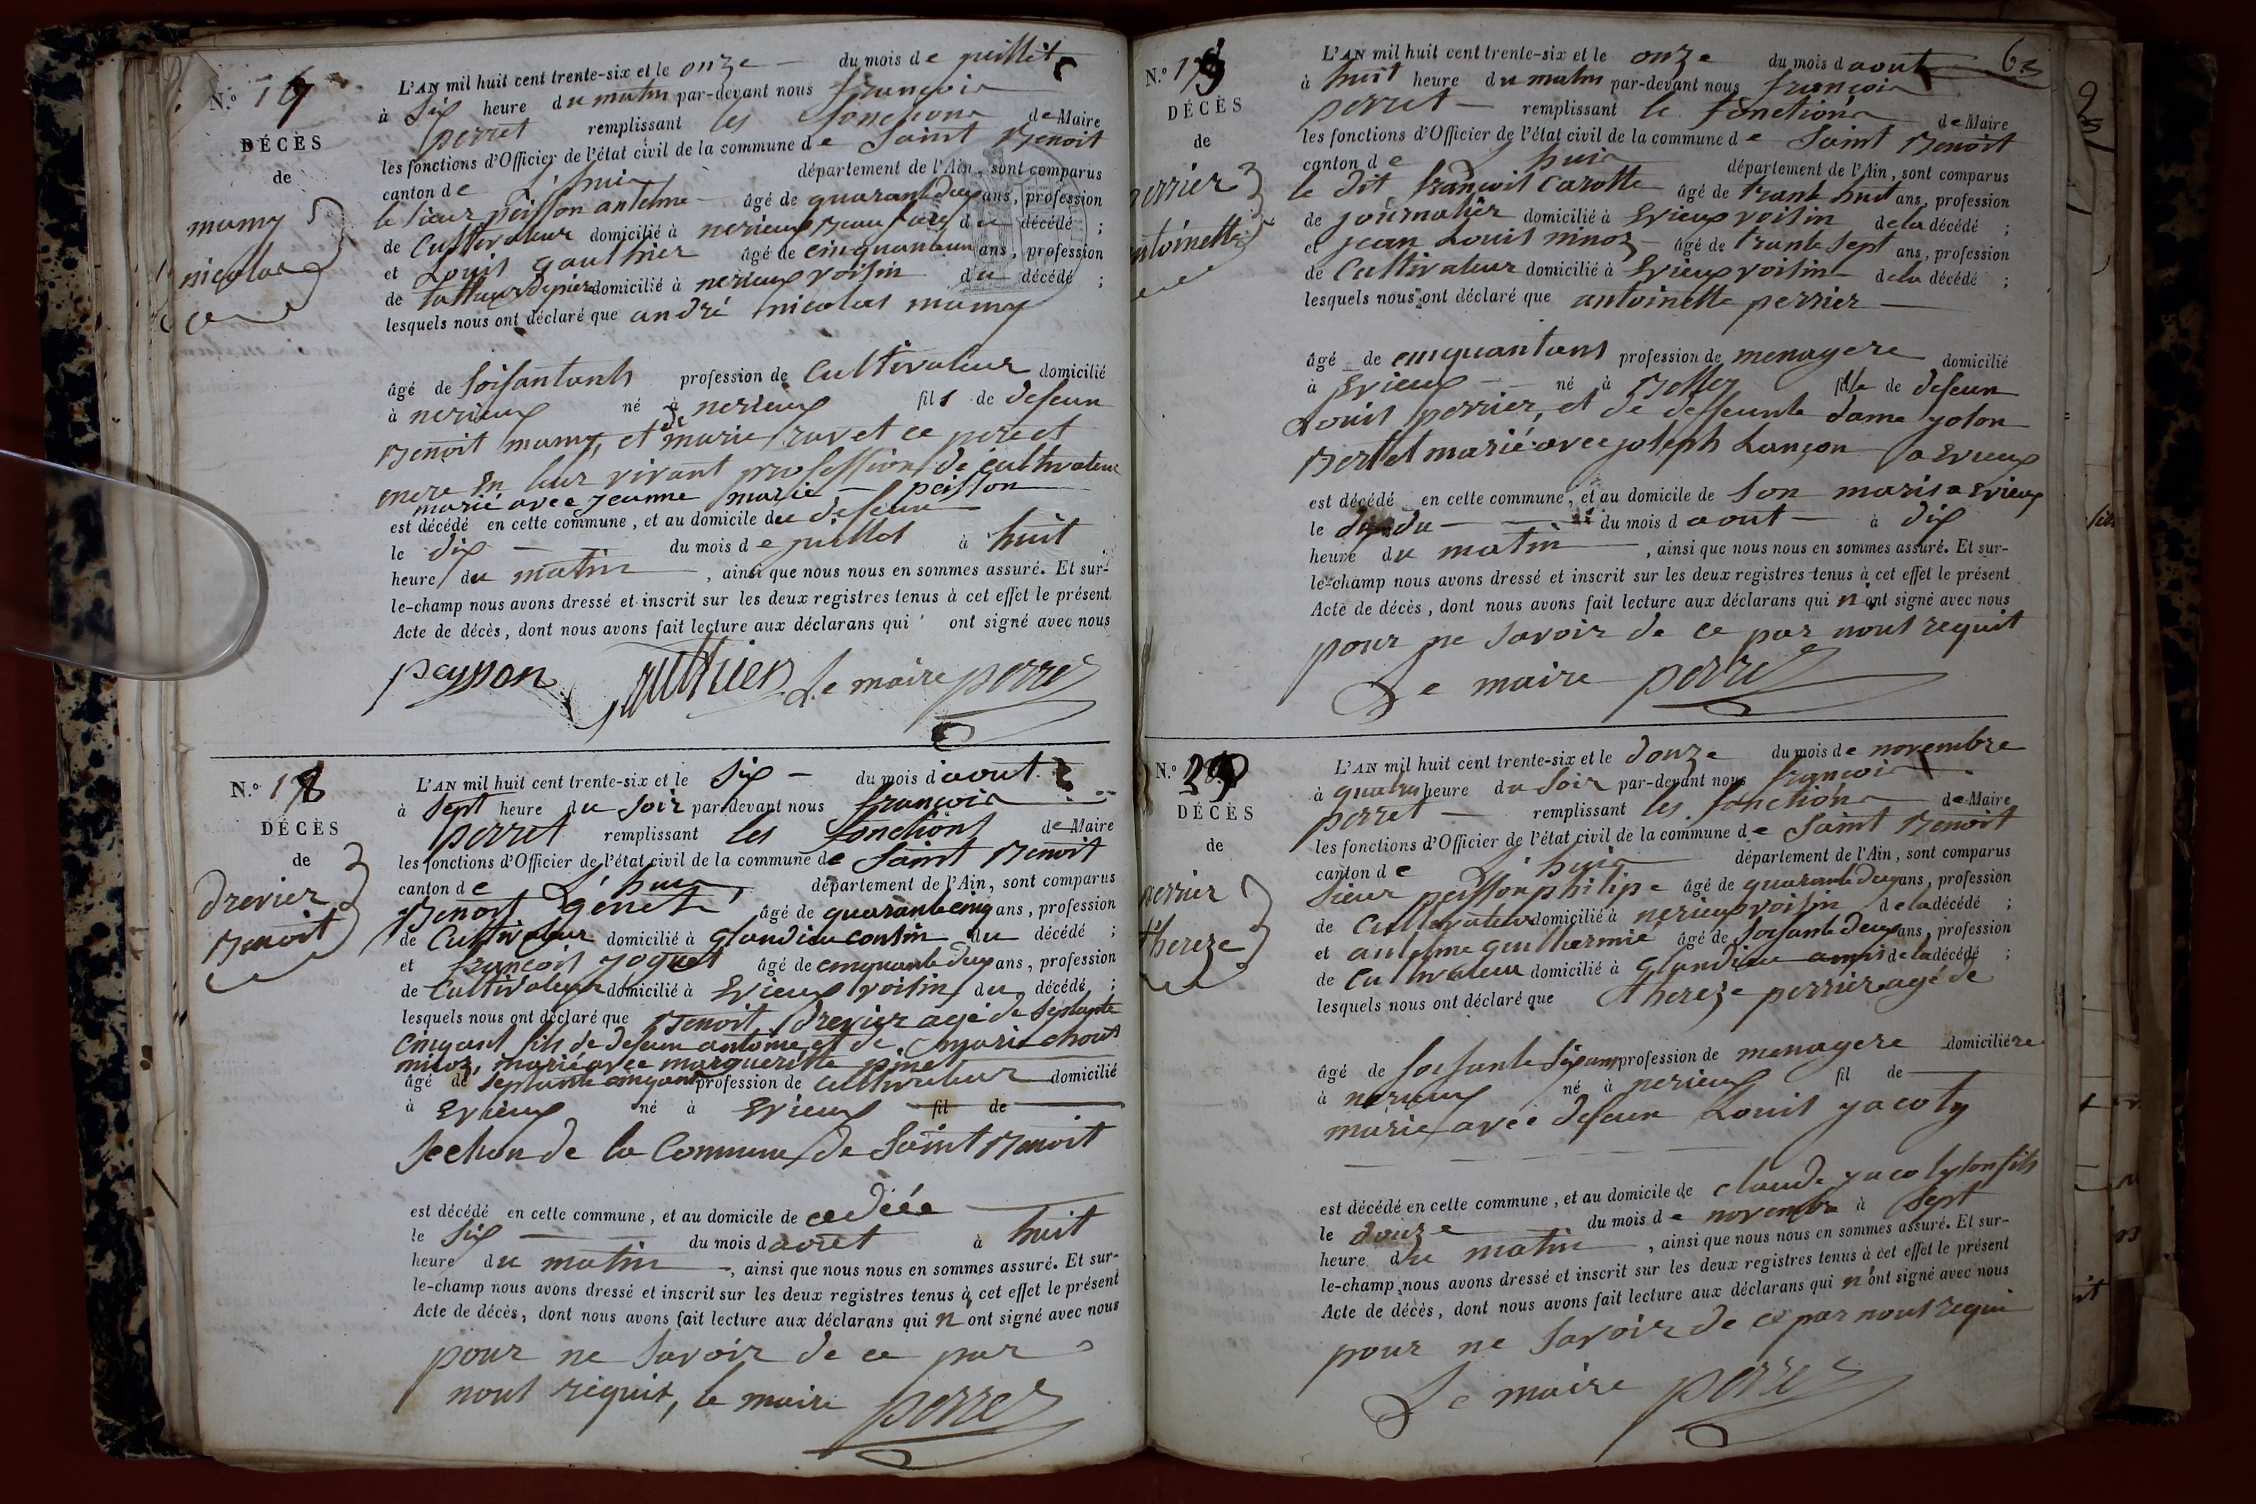 N.º 17
DÉCÈS
de
mamy
nicolas
L'AN mil huit cent trente-six et le onze du mois de juillet
à six heure du matin par-devant nous françois
perret remplissant les fonctions de Maire
les fonctions d'Officier de l'état civil de la commune de Saint Benoit
canton de L'huis département de l'Ain, sont comparus
le sieur peisson antelme âgé de quarante deux ans, profession
de Cultivateur domicilié à nerieux du décédé ;
et Louis gauthier âgé de cinquante un ans, profession
de domicilié à nerieux voisin du décédé ;
lesquels nous ont déclaré que andré nicolas mamy
âgé de soisantans profession de Cultivateur domicilié
à nerieux né à nerieux fils de defeun
Benoit mamy, et de marie ravet ce pere et
mere en leur vivant profession de cultivateur
marié avec jeanne marie peisson
est décédé en cette commune, et au domicile du defeun
le dix du mois de juillet à huit
heure du matin, ainsi que nous nous en sommes assuré. Et sur-
le-champ nous avons dressé et inscrit sur les deux registres tenus à cet effet le présent
Acte de décès, dont nous avons fait lecture aux déclarans qui ont signé avec nous
peysson gauthier Le maire perret
N.º 18
DÉCÈS
de
Drevier
Benoit
L'AN mil huit cent trente-six et le six du mois d'aout
à sept heure du soir par devant nous françois
perret remplissant les fonctions de Maire
les fonctions d'Officier de l'état civil de la commune de Saint Benoit
canton de L'huis département de l'Ain, sont comparus
Benoit genet âgé de quarante cinq ans, profession
de Cultivateur domicilié à glandieu cousin du décédé ;
et françois joguet âgé de cinquante deux ans, profession
de Cultivateur domicilié à Evieux voisin du décédé ;
lesquels nous ont déclaré que Benoit Drevier agé de septante
cinq ans fils de defeun antoine et de marie
marié avec margueritte
âgé de septante cinq ans profession de cultivateur domicilié
à Evieux né à Evieux fil de
section de la Commune de Saint Benoit
est décédé en cette commune, et au domicile de
le six du mois d aout à huit
heure du matin, ainsi que nous nous en sommes assuré. Et sur-
le-champ nous avons dressé et inscrit sur les deux registres tenus à cet effet le présent
Acte de décès, dont nous avons fait lecture aux déclarans qui n ont signé avec nous
pour ne savoir de ce par
nous requit, le maire perret
63
N.º 19
DÉCÈS
de
perrier
antoinette
L'AN mil huit cent trente-six et le onze du mois d aout
à huit heure du matin par-devant nous françois
perret remplissant le fonctions de Maire
les fonctions d'Officier de l'état civil de la commune de Saint Benoit
canton de L'huis département de l'Ain, sont comparus
le dit françois Carotte âgé de trante huit ans, profession
de journalier domicilié à Evieux voisin de la décédé ;
et jean Louis ninoz âgé de trante sept ans, profession
de Cultivateur domicilié à Evieux voisin de la décédé ;
lesquels nous ont déclaré que antoinette perrier
âgé de cinquantans profession de menagere domicilié
à Evieux né à fille de defeun
Louis perrier, et de deffeunte dame
Bertet marié avec joseph Lançon a Evieux
est décédé en cette commune, et au domicile de son maris a Evieux
le dix du du mois d aout à dix
heure du matin, ainsi que nous nous en sommes assuré. Et sur-
le-champ nous avons dressé et inscrit sur les deux registres tenus à cet effet le présent
Acte de décès, dont nous avons fait lecture aux déclarans qui n ont signé avec nous
pour ne savoir de ce par nous requit
Le maire perret
N.º 20
DÉCÈS
de
perrier
thereze
L'AN mil huit cent trente-six et le douze du mois de novembre
à quatre heure du soir par-devant nous françois
perret remplissant les fonctions de Maire
les fonctions d'Officier de l'état civil de la commune de Saint Benoit
canton de L'huis département de l'Ain, sont comparus
sieur peisson philipe âgé de quarante deux ans, profession
de Cultivateur domicilié à nerieux voisin de la décédé ;
et antelme guillermié âgé de soisante deux ans, profession
de Cultivateur domicilié à Glandieu amis de la décédé ;
lesquels nous ont déclaré que thereze perrier agé de
âgé de soisante six ans profession de menagere domiciliére
à nerieux né à nerieux fil de
marie avec defeun Louis jacoty
est décédé en cette commune, et au domicile de claude jacoty son fils
le douze du mois de novembre à sept
heure du matin, ainsi que nous nous en sommes assuré. Et sur-
le-champ nous avons dressé et inscrit sur les deux registres tenus à cet effet le présent
Acte de décès, dont nous avons fait lecture aux déclarans qui n'ont signé avec nous
pour ne savoir de ce par nous requi
Le maire perret